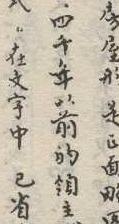 房屋形是正面
四千年以前的領主
在文字中已省